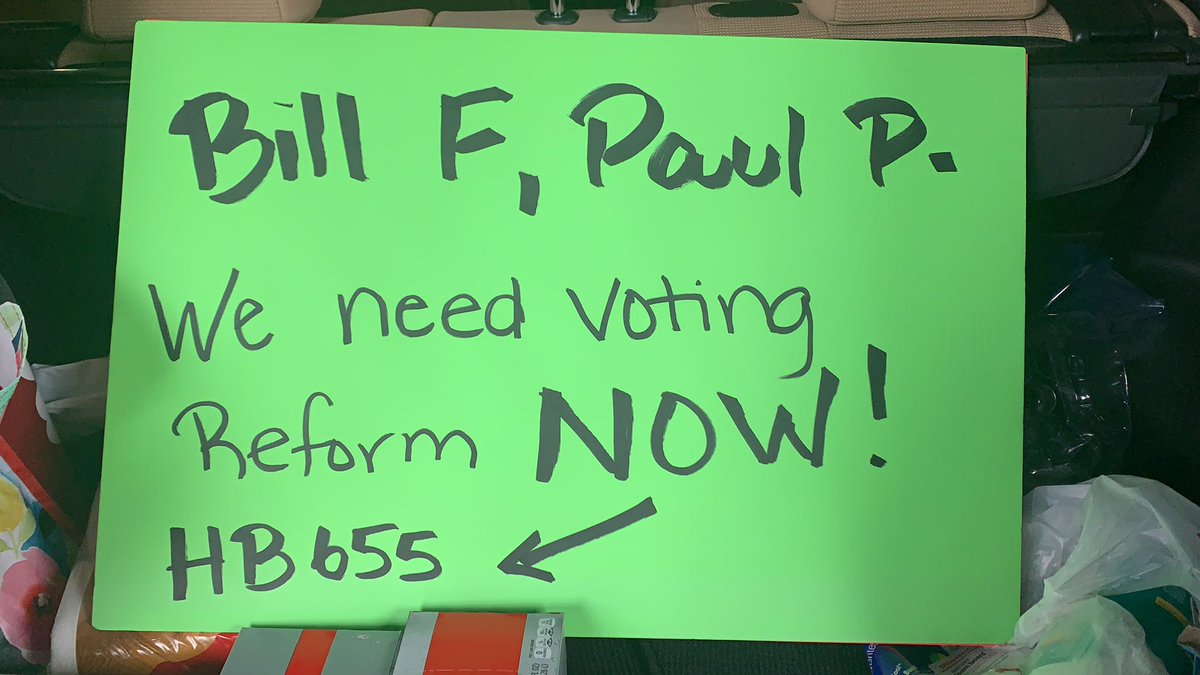 Bill F, Paul P.
We need voting
Reform NOW!
HB655